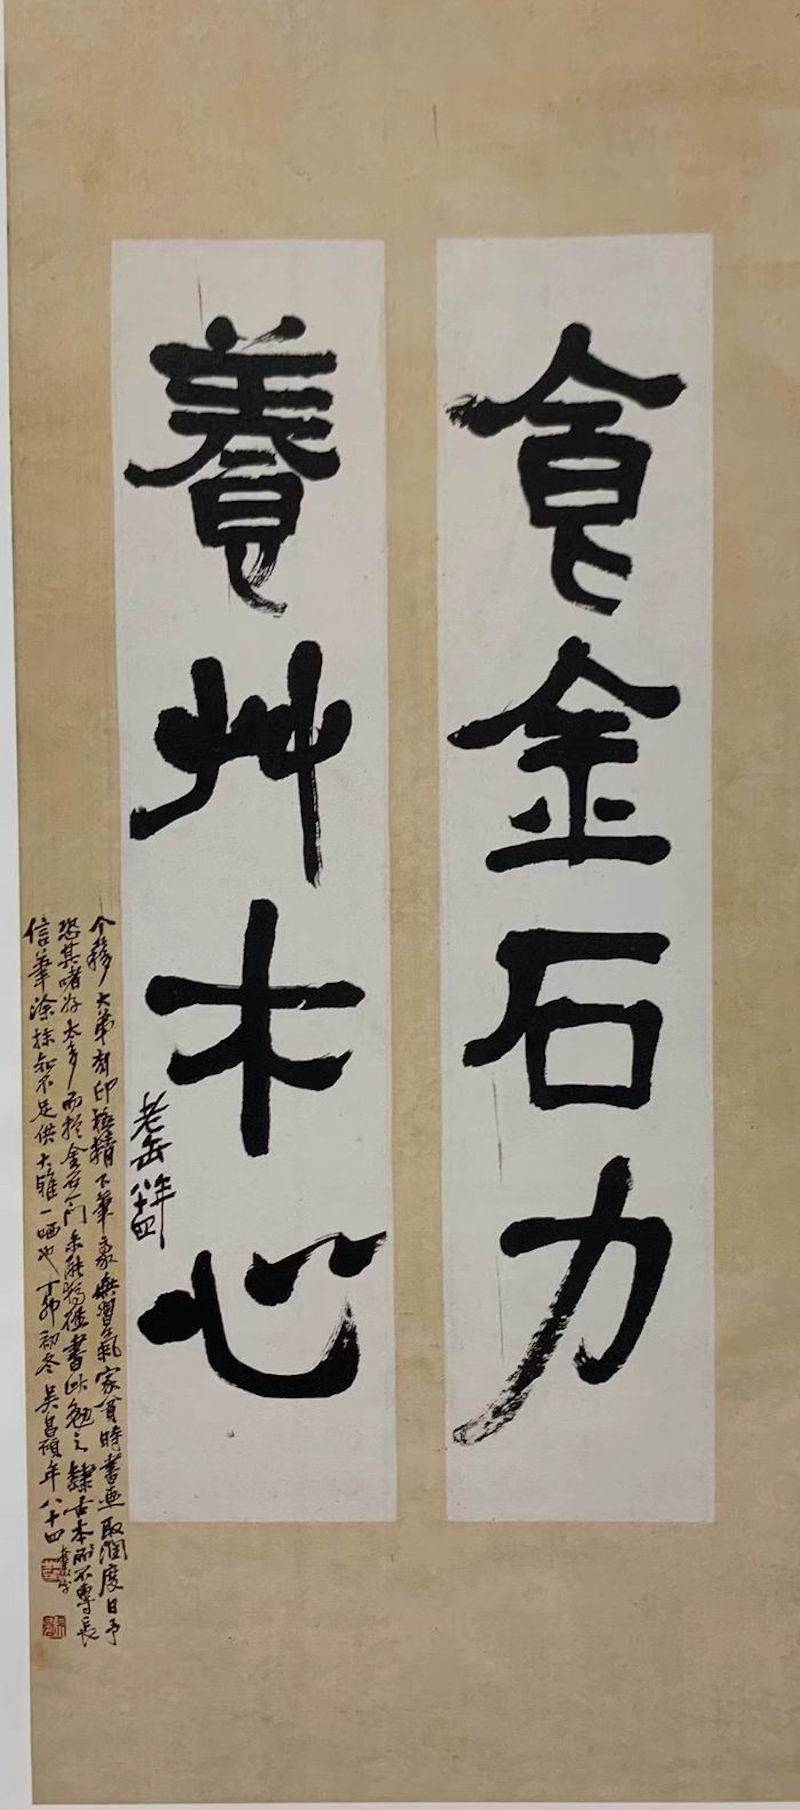 食金石力
養艸木心
老缶年八十四
大弟刻印極精下筆家無習氣家貧時書画取潤度日予
恐其嗜好太多而於金石一门未能獨催書此勉之隸古本所不專長
信筆塗抹知不足供大雅一哂也丁卯初冬吳昌碩年八十四